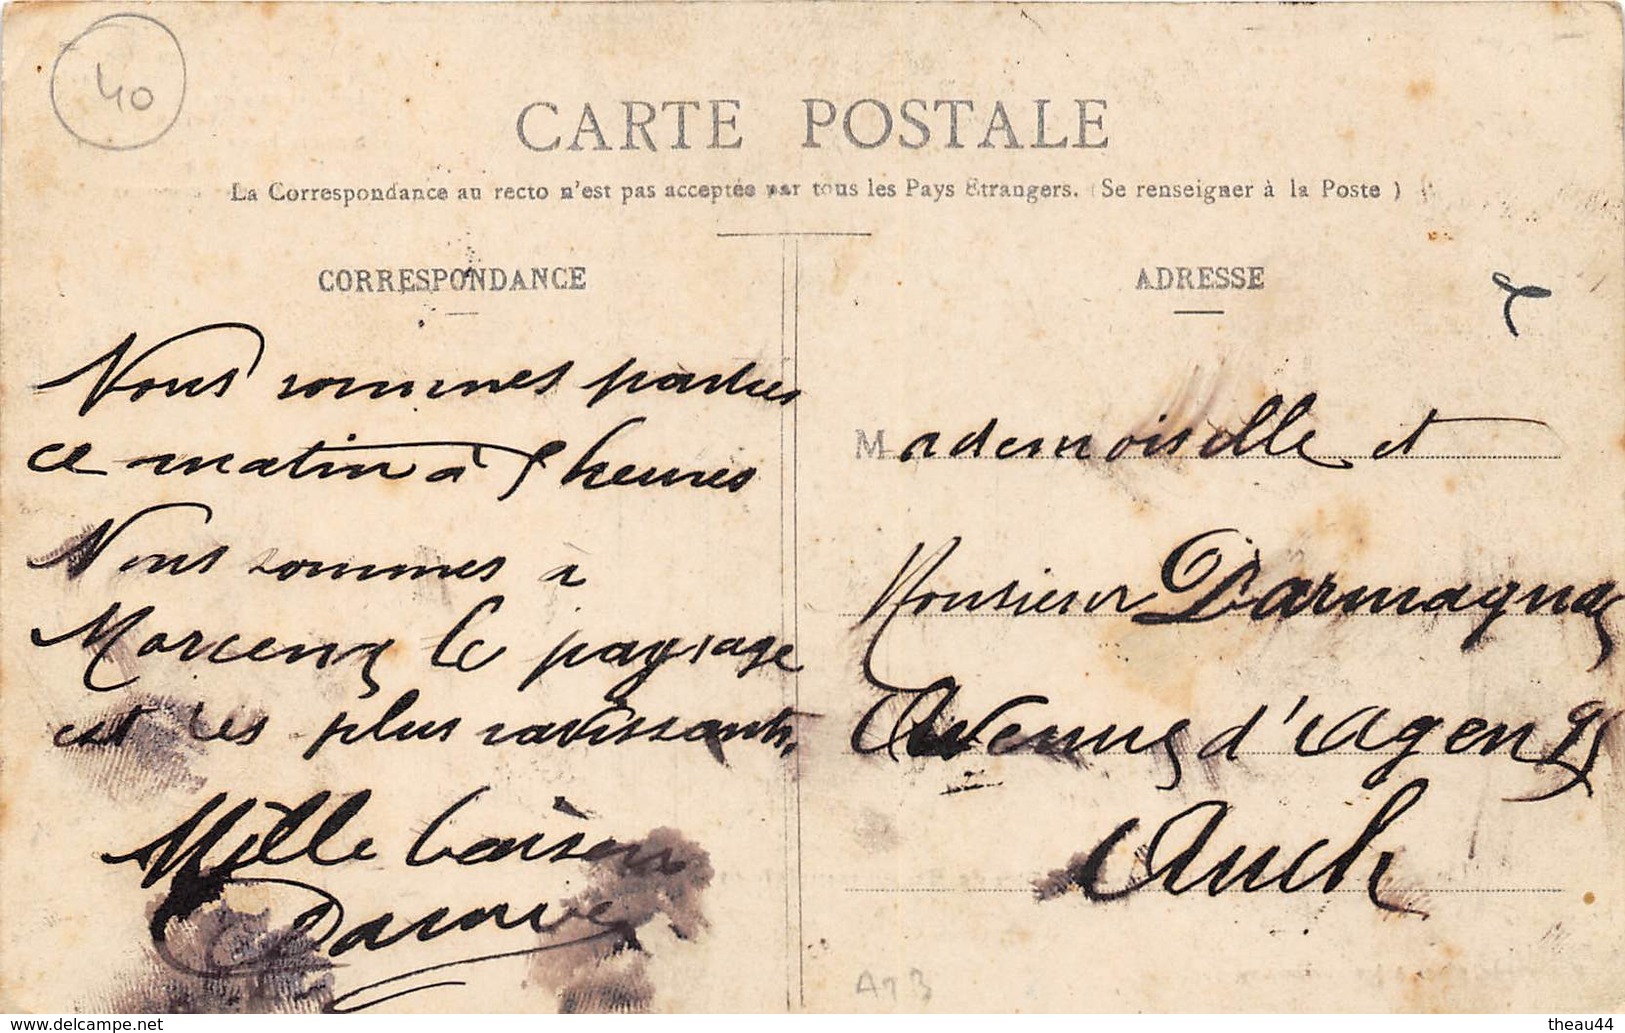 40
CARTE POSTALE
La Correspondance au recto n'est pas acceptée par tous les Pays Etrangers. (Se renseigner à la Poste)
CORRESPONDANCE
Nous sommes parties
ce matin à 5 heures
Nous sommes à
Morcenx le paysage
est des plus ravissants,
Mille baisers
ADRESSE
Mademoiselle et
Monsieur Darmagnac
Avenue d'Agen 95
Auch
delcampe.net
theau44